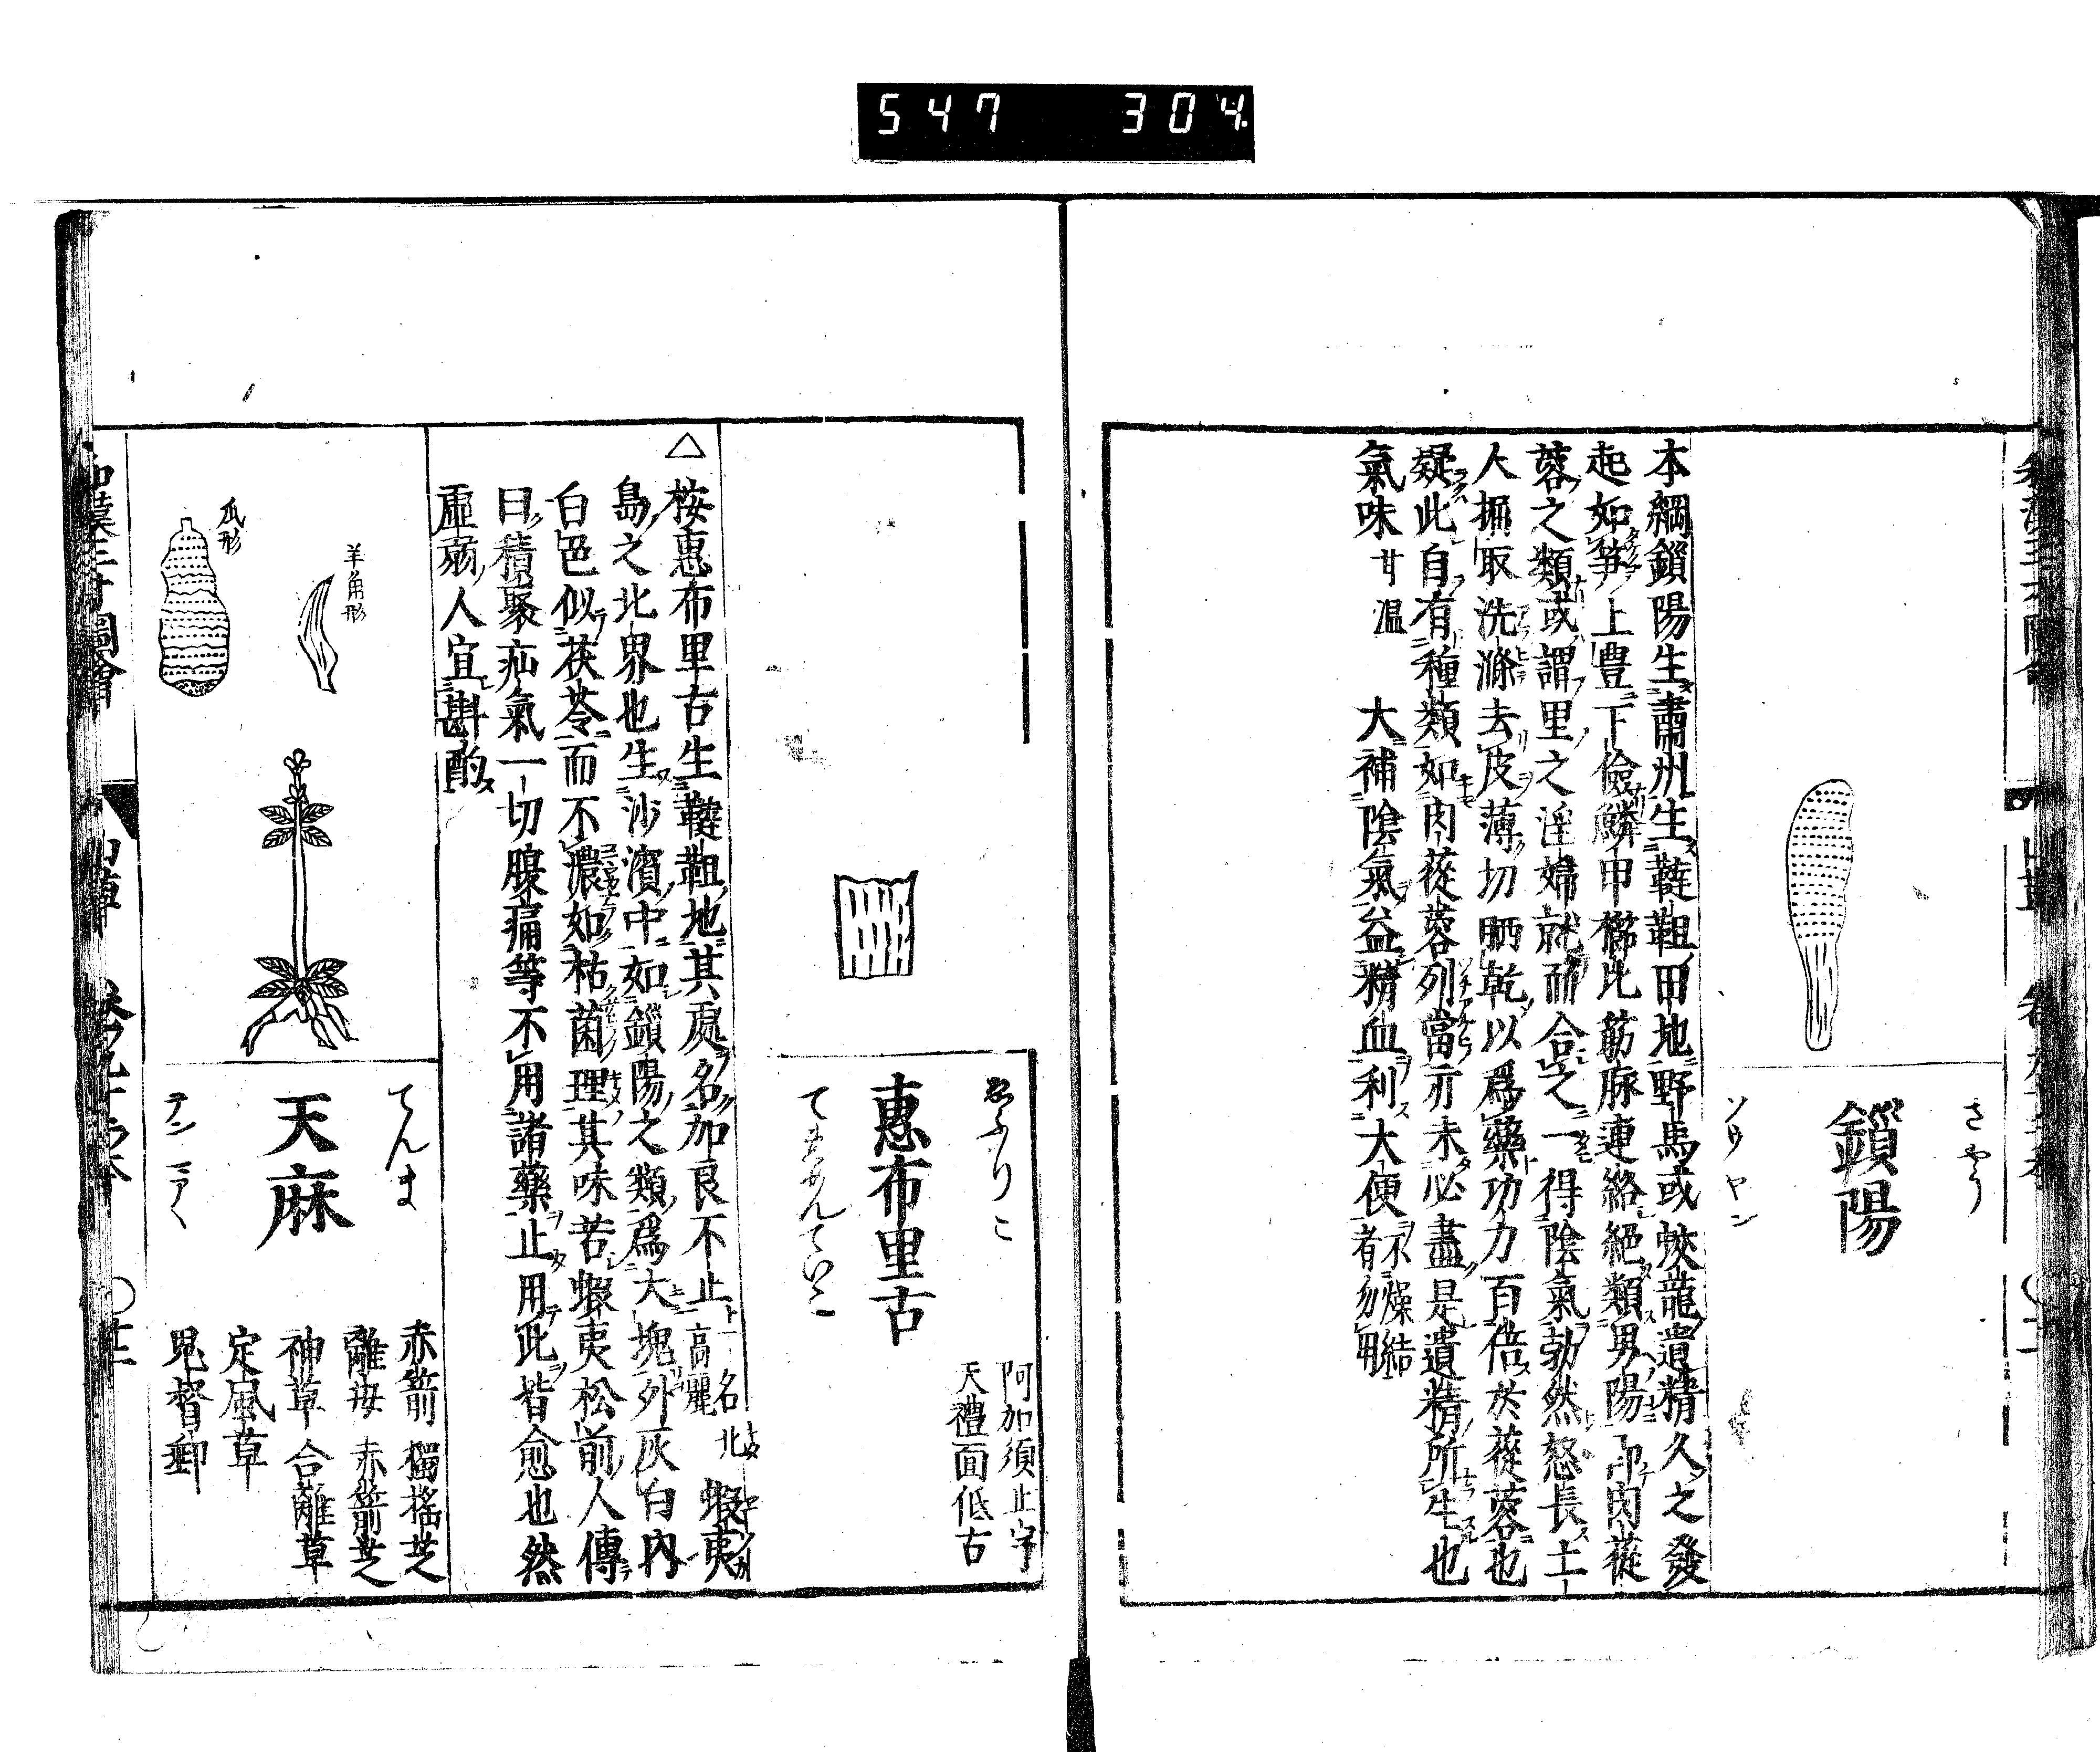 547 304
鎻陽
さやう
ソウ ヤン
本綱鎻陽生肅州生韃靼田地野馬或蛟龍遺精久之發
起如笋上豊下儉鱗甲櫛比筋脉連絡絕類男陽即肉蓯
蓉之類或謂里之淫婦就而合之一得陰氣勃然怒長土
人掘取洗滌去皮薄切晒乾以爲藥功力百倍於蓯蓉也
疑此自有種類如肉蓯蓉列當亦未必盡是遺精所生也
氣味 甘温 大補陰氣益精血利大便 不燥結者勿用
ゑふりこ
惠布里古
てれめんていこ
阿加須止宇
天禮面低古
△ 桉惠布里古生韃靼地其處名加良不止 高麗 名北 蝦夷
島之北界也生沙濱中如鎻陽之類爲大塊外灰白內
白色似茯苓而不濃如枯菌理其味苦蝦夷松前人傳
曰積聚疝氣一切腹痛等不用諸藥止用此皆愈也然
虛弱人宜斟酌
羊角形
瓜形
てんま
天麻
テン マアヽ
赤箭 獨搖芝
離毋 赤箭芝
神草 合離草
定風草
鬼督郵
和漢三才圖會